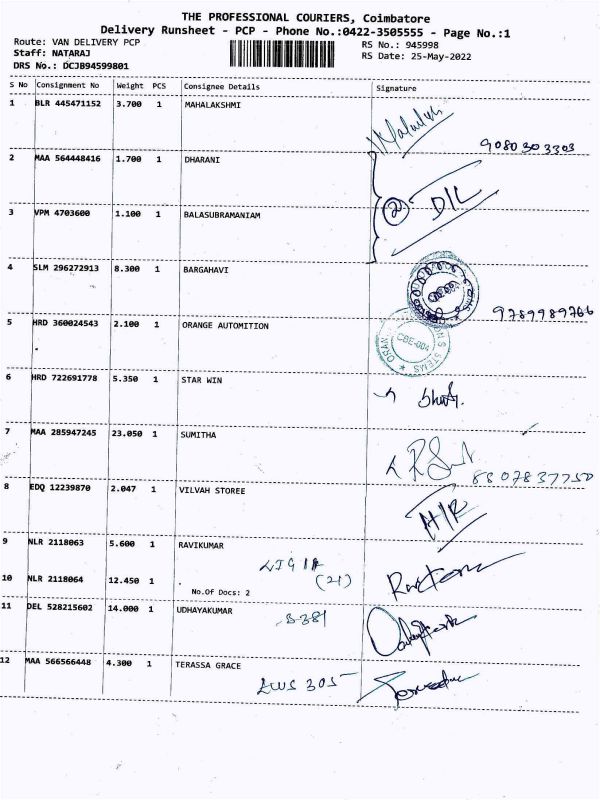 THE PROFESSIONAL COURIERS, Coimbatore
Delivery Runsheet - PCP - Phone No.:0422-3505555 - Page No.:1
Route: VAN DELIVERY PCP
RS No.: 945998
Staff: NATARAJ
RS Date: 25-May-2022
DRS No.: DCJB94599801
S No Consignment No Weight PCS Consignee Details Signature
1 BLR 445471152 3.700 1 MAHALAKSHMI
9080303303
2 MAA 564448416 1.700 1 DHARANI
2 D/L
3 VPM 4703600 1.100 1 BALASUBRAMANIAM
4 SLM 296272913 8.300 1 BARGAHAVI
9789989766
5 HRD 360024543 2.100 1 ORANGE AUTOMITION
CBE-004
6 HRD 722691778 5.350 1 STAR WIN
7 MAA 285947245 23.050 1 SUMITHA
8807837750
8 EDQ 12239870 2.047 1 VILVAH STOREE
9 NLR 2118063 5.600 1 RAVIKUMAR
(21)
10 NLR 2118064 12.450 1 .
No.Of Docs: 2
11 DEL 528215602 14.000 1 UDHAYAKUMAR
S-381
12 MAA 566566448 4.300 1 TERASSA GRACE
EWS 305